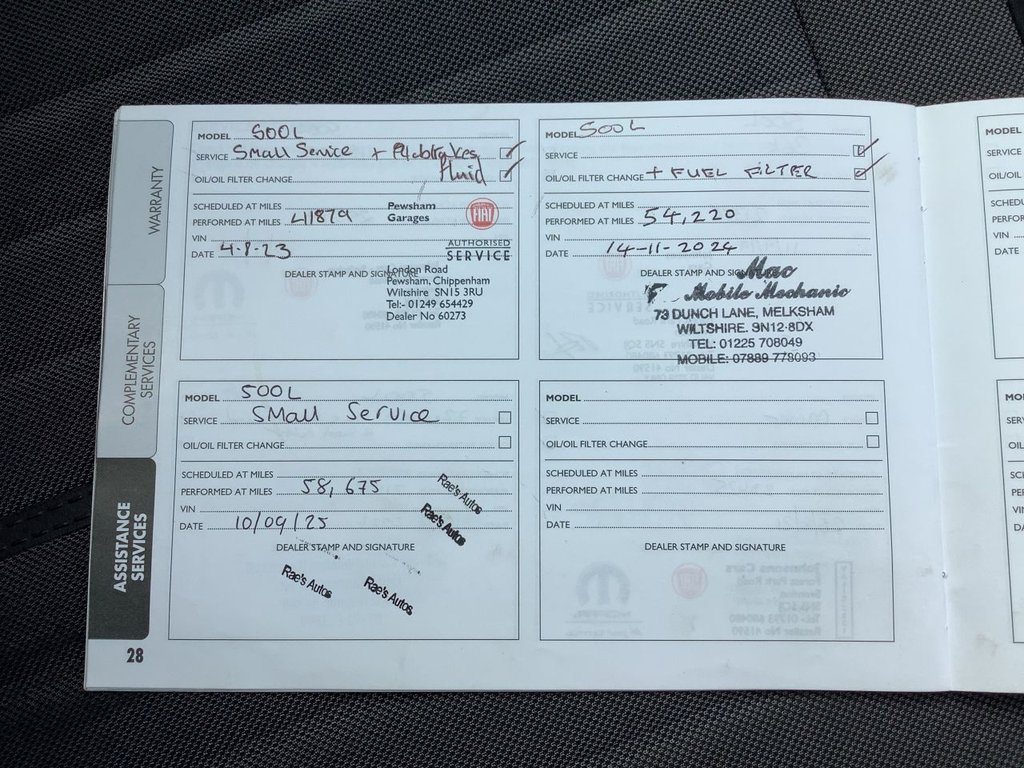 WARRANTY
COMPLEMENTARY
SERVICES
ASSISTANCE
SERVICES
28
MODEL 500L
SERVICE Small Service +
fluid
OIL/OIL FILTER CHANGE
SCHEDULED AT MILES
PERFORMED AT MILES 41879
VIN
DATE 4-8-23
Pewsham
Garages
FIAT
AUTHORISED
SERVICE
DEALER STAMP AND SIGNATURE
London Road
Pewsham, Chippenham
Wiltshire SN15 3RU
Tel:- 01249 654429
Dealer No 60273
MODEL 500L
SERVICE
OIL/OIL FILTER CHANGE + FUEL FILTER
SCHEDULED AT MILES
PERFORMED AT MILES 54,220
VIN
DATE 14-11-2024
DEALER STAMP AND
Mac
Mobile Mechanic
73 DUNCH LANE, MELKSHAM
WILTSHIRE. SN12 8DX
TEL: 01225 708049
MOBILE: 07889 778093
MODEL 500L
SERVICE Small Service
OIL/OIL FILTER CHANGE
SCHEDULED AT MILES
PERFORMED AT MILES 58,675
VIN
DATE 10/09/25
DEALER STAMP AND SIGNATURE
Rae's Autos
Rae's Autos
Rae's Autos
Rae's Autos
MODEL
SERVICE
OIL/OIL FILTER CHANGE
SCHEDULED AT MILES
PERFORMED AT MILES
VIN
DATE
DEALER STAMP AND SIGNATURE
MODEL
SERVICE
OIL/OIL
SCHEDU
PERFOR
VIN
DATE
MO
SER
OIL
SC
PE
VIN
DA